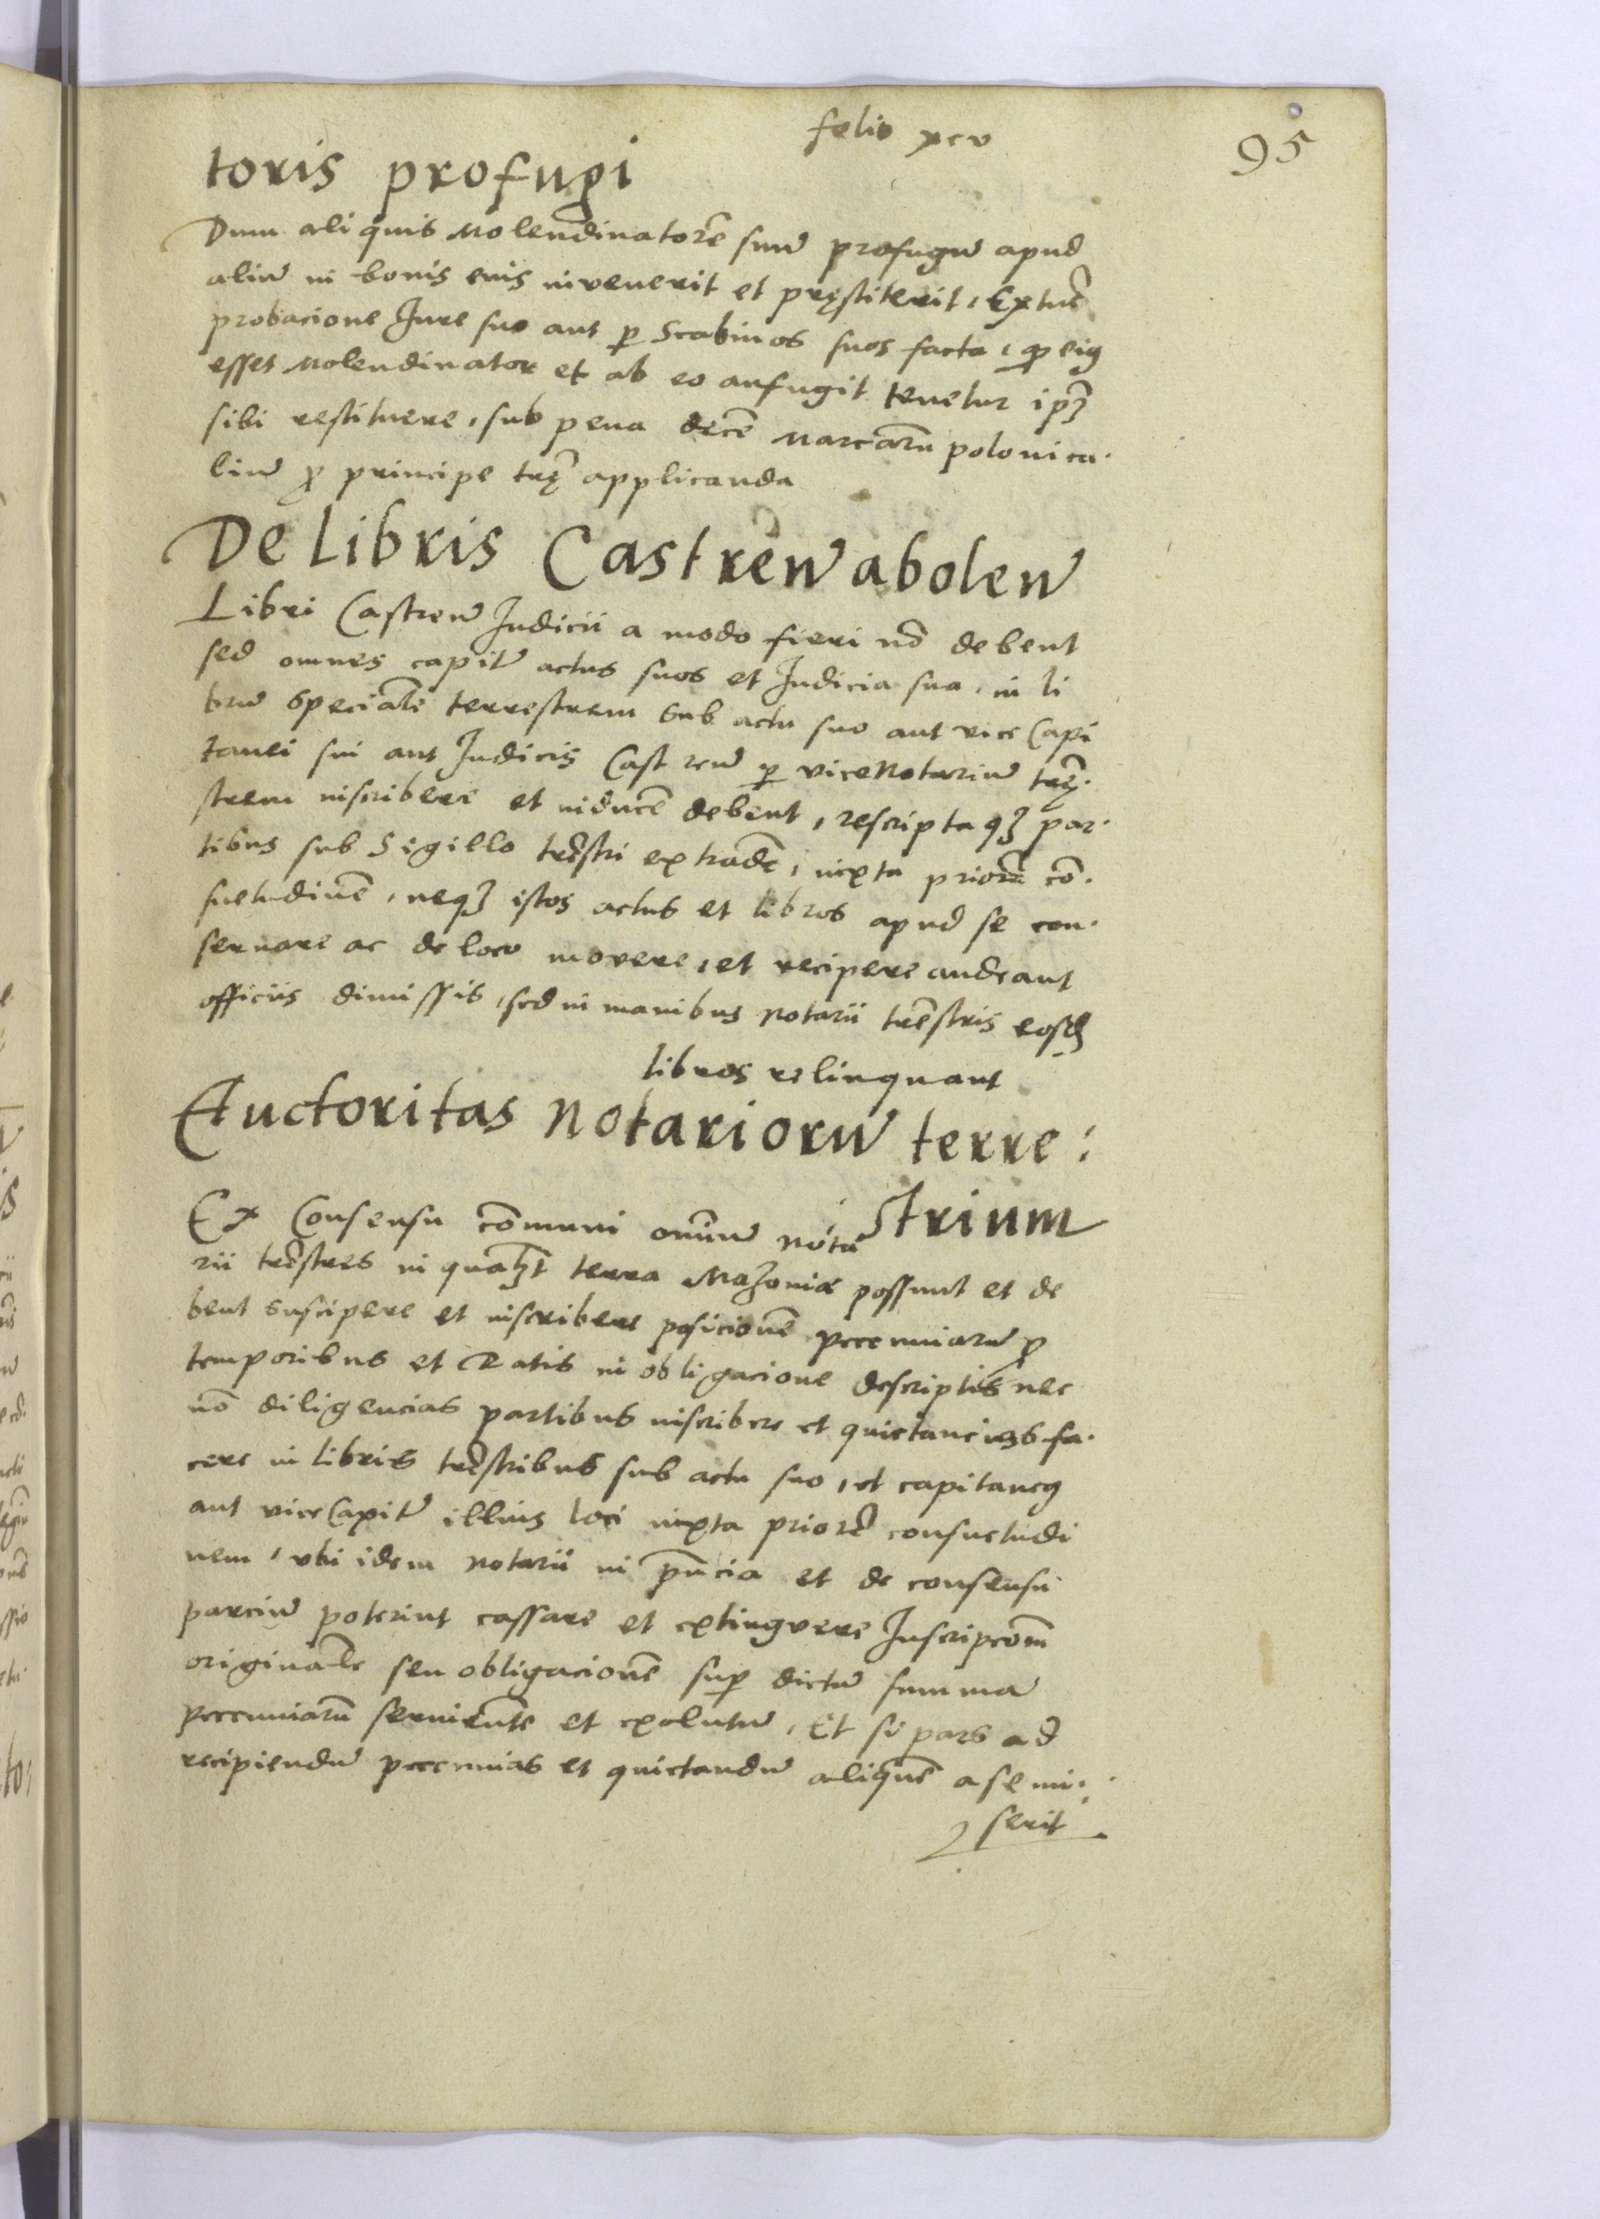 folio xcv
95
toris profugi
Dum aliquis Molendinatorē suū profugū apud
aliū in bonis eius invenerit et pręstiterit, Extūc
probacione Jure suo aut p̱ Scabinos suos facta, ꝙ eiꝰ
esset Molendinator et ab eo aufugit tenetur ipꝫ
sibi restituere, sub pena decē Marcarū polonica.
liū ꝓ principe trę applicanda
De Libris Castreñ aboleñ
Libri Castreñ Judicii a modo fieri nō debent
sed omnes capitē actus suos et Judicia sua, in li
brū specialē terrestrem sub actu suo aut vice Capi
tanei sui aut Judicis Castreñ p̱ viceNotariū trę.
strem inscribere et inducē debent, rescriptaqꝫ par.
tibus sub Sigillo trēstri extradē, iuxta priorē cō.
suetudinē, neqꝫ istos actus et libros apud se con.
seruare ac de loco movere, et recipere audeant
officiis dimissis, sed in manibus Notarii trēstris eosdꝫ
libros relinquant
Auctoritas Notariorū terre:
strium
Ex Consensu cōmuni omniū Nota
rii trēstres in qualꝫt terra Mazoniæ possunt et de
bent suscipere et inscribere posicionē pecuniarū ꝓ
temporibus et Ratis in obligacione descriptis nec
nō diligencias partibus inscribere et quietancias fa.
cere in libris trēstribus sub actu suo, et capitaneꝰ
aut viceCapitē illius loci iuxta priorē consuetudi
nem, vbi idem Notarii in p̄ncia et de consensu
parciū poterint cassare et extinguere Inscripcōm
originalē seu obligacionē sup̱ dictā summā
pecuniarū seruientē et exolutā, Et si pars ad
recipiendū pecunias et quietandū aliquē a se mi:
serit